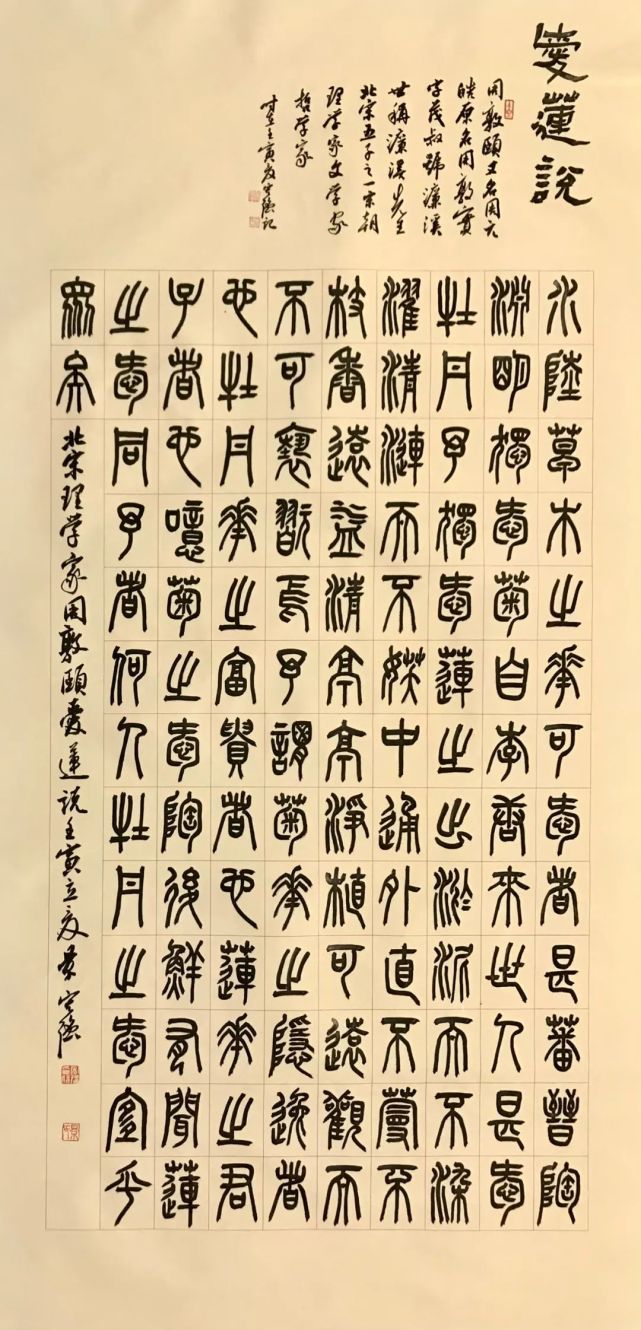 愛蓮說
周敦頤又名周元
皓原名周敦實
字茂叔號濂溪
世稱濂溪先生
北宋五子之一宋朝
理学家文学家
哲学家
时在壬寅夏記
水陸草木之花可愛者甚蕃晉陶
淵明獨愛菊自李唐來世人甚愛
牡丹予獨愛蓮之出淤泥而不染
濯清漣而不妖中通外直不蔓不
枝香遠益清亭亭淨植可遠觀而
不可褻翫焉予謂菊花之隱逸者
也牡丹花之富貴者也蓮花之君
子者也噫菊之愛陶後鮮有聞蓮
之愛同予者何人牡丹之愛宜乎
眾矣
北宋理学家周敦頤愛蓮説壬寅立夏